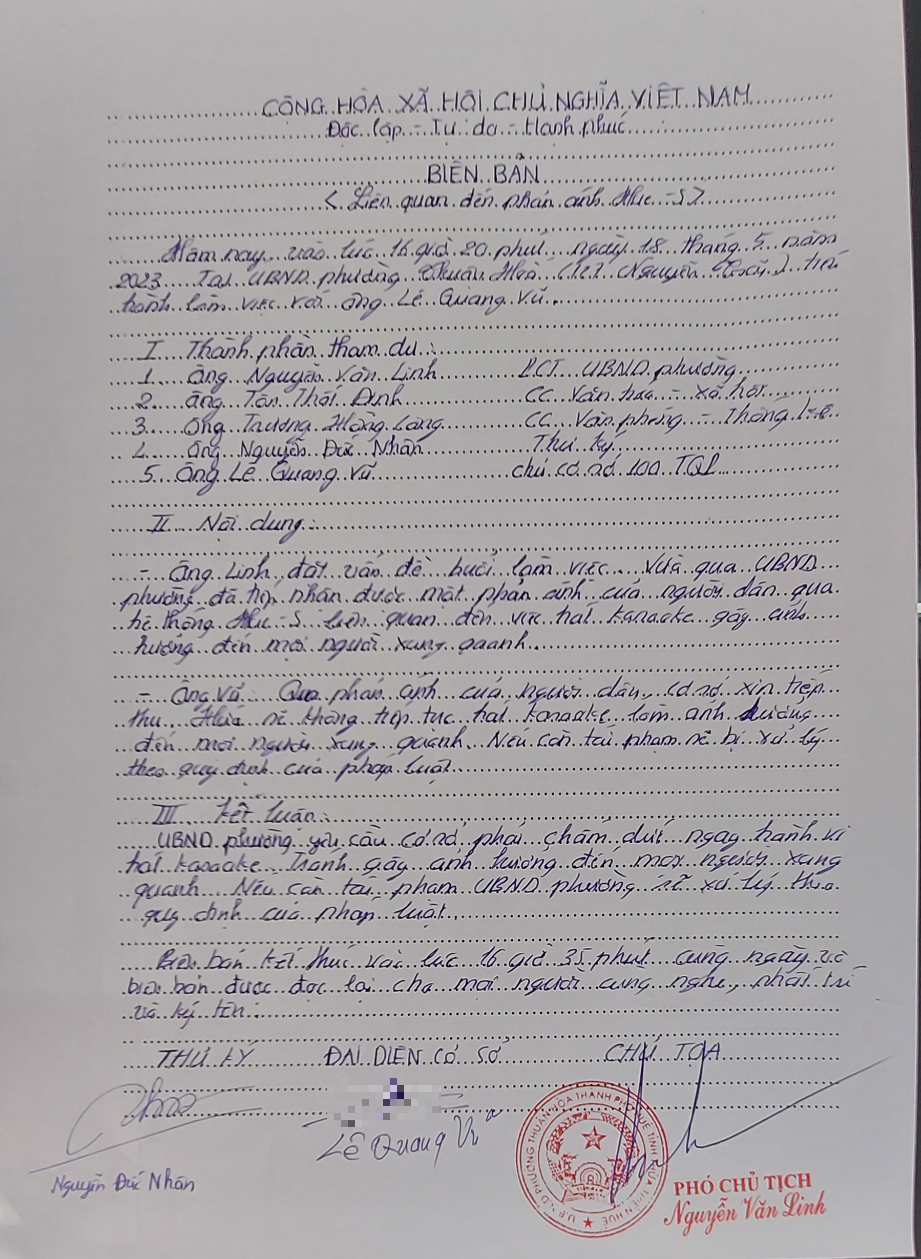 CỘNG HÒA XÃ HỘI CHỦ NGHĨA VIỆT NAM
Độc lập - Tự do - Hạnh phúc
BIÊN BẢN
< Liên quan đến phản ánh Hue - S >
Hôm nay vào lúc 16 giờ 20 phút, ngày 18 tháng 5 năm
2023 Tại UBND phường Thuận Hoà tiến
hành làm việc với ông Lê Quang Vũ.
I Thành phần tham dự:
1. Ông Nguyễn Văn Linh PCT UBND phường
2. Ông Tôn Thất Định CC Văn hoá - xã hội
3. Ông Trương Hồng Long CC Văn phòng - Thống kê
4. Ông Nguyễn Đức Nhân Thư ký
5. Ông Lê Quang Vũ chủ cơ sở 100 TQL
II Nội dung:
- Ông Linh đặt vấn đề buổi làm việc Vừa qua UBND
phường đã tiếp nhận được một phản ánh của người dân qua
hệ thống Hue - S liên quan đến việc hát karaoke gây ảnh
hưởng đến mọi người xung quanh.
- Ông Vũ Qua phản ánh của người dân, cơ sở xin tiếp
thu, Hứa sẽ không tiếp tục hát karaoke làm ảnh hưởng
đến mọi người xung quanh. Nếu còn tái phạm sẽ bị xử lý
theo quy định của pháp luật.
III Kết luận
UBND phường yêu cầu cơ sở phải chấm dứt ngay hành vi
hát karaoke tránh gây ảnh hưởng đến mọi người xung
quanh Nếu còn tái phạm UBND phường sẽ xử lý theo
quy định của pháp luật.
Biên bản kết thúc vào lúc 16 giờ 35 phút cùng ngày và
biên bản được đọc lại cho mọi người cùng nghe, nhất trí
và ký tên.
THƯ KÝ ĐẠI DIỆN CƠ SỞ CHỦ TỌA
Lê Quang Vũ
Nguyễn Đức Nhân
U.B.N.D PHƯỜNG THUẬN HÒA THÀNH PHỐ HUẾ TỈNH THỪA THIÊN HUẾ
PHÓ CHỦ TỊCH
Nguyễn Văn Linh